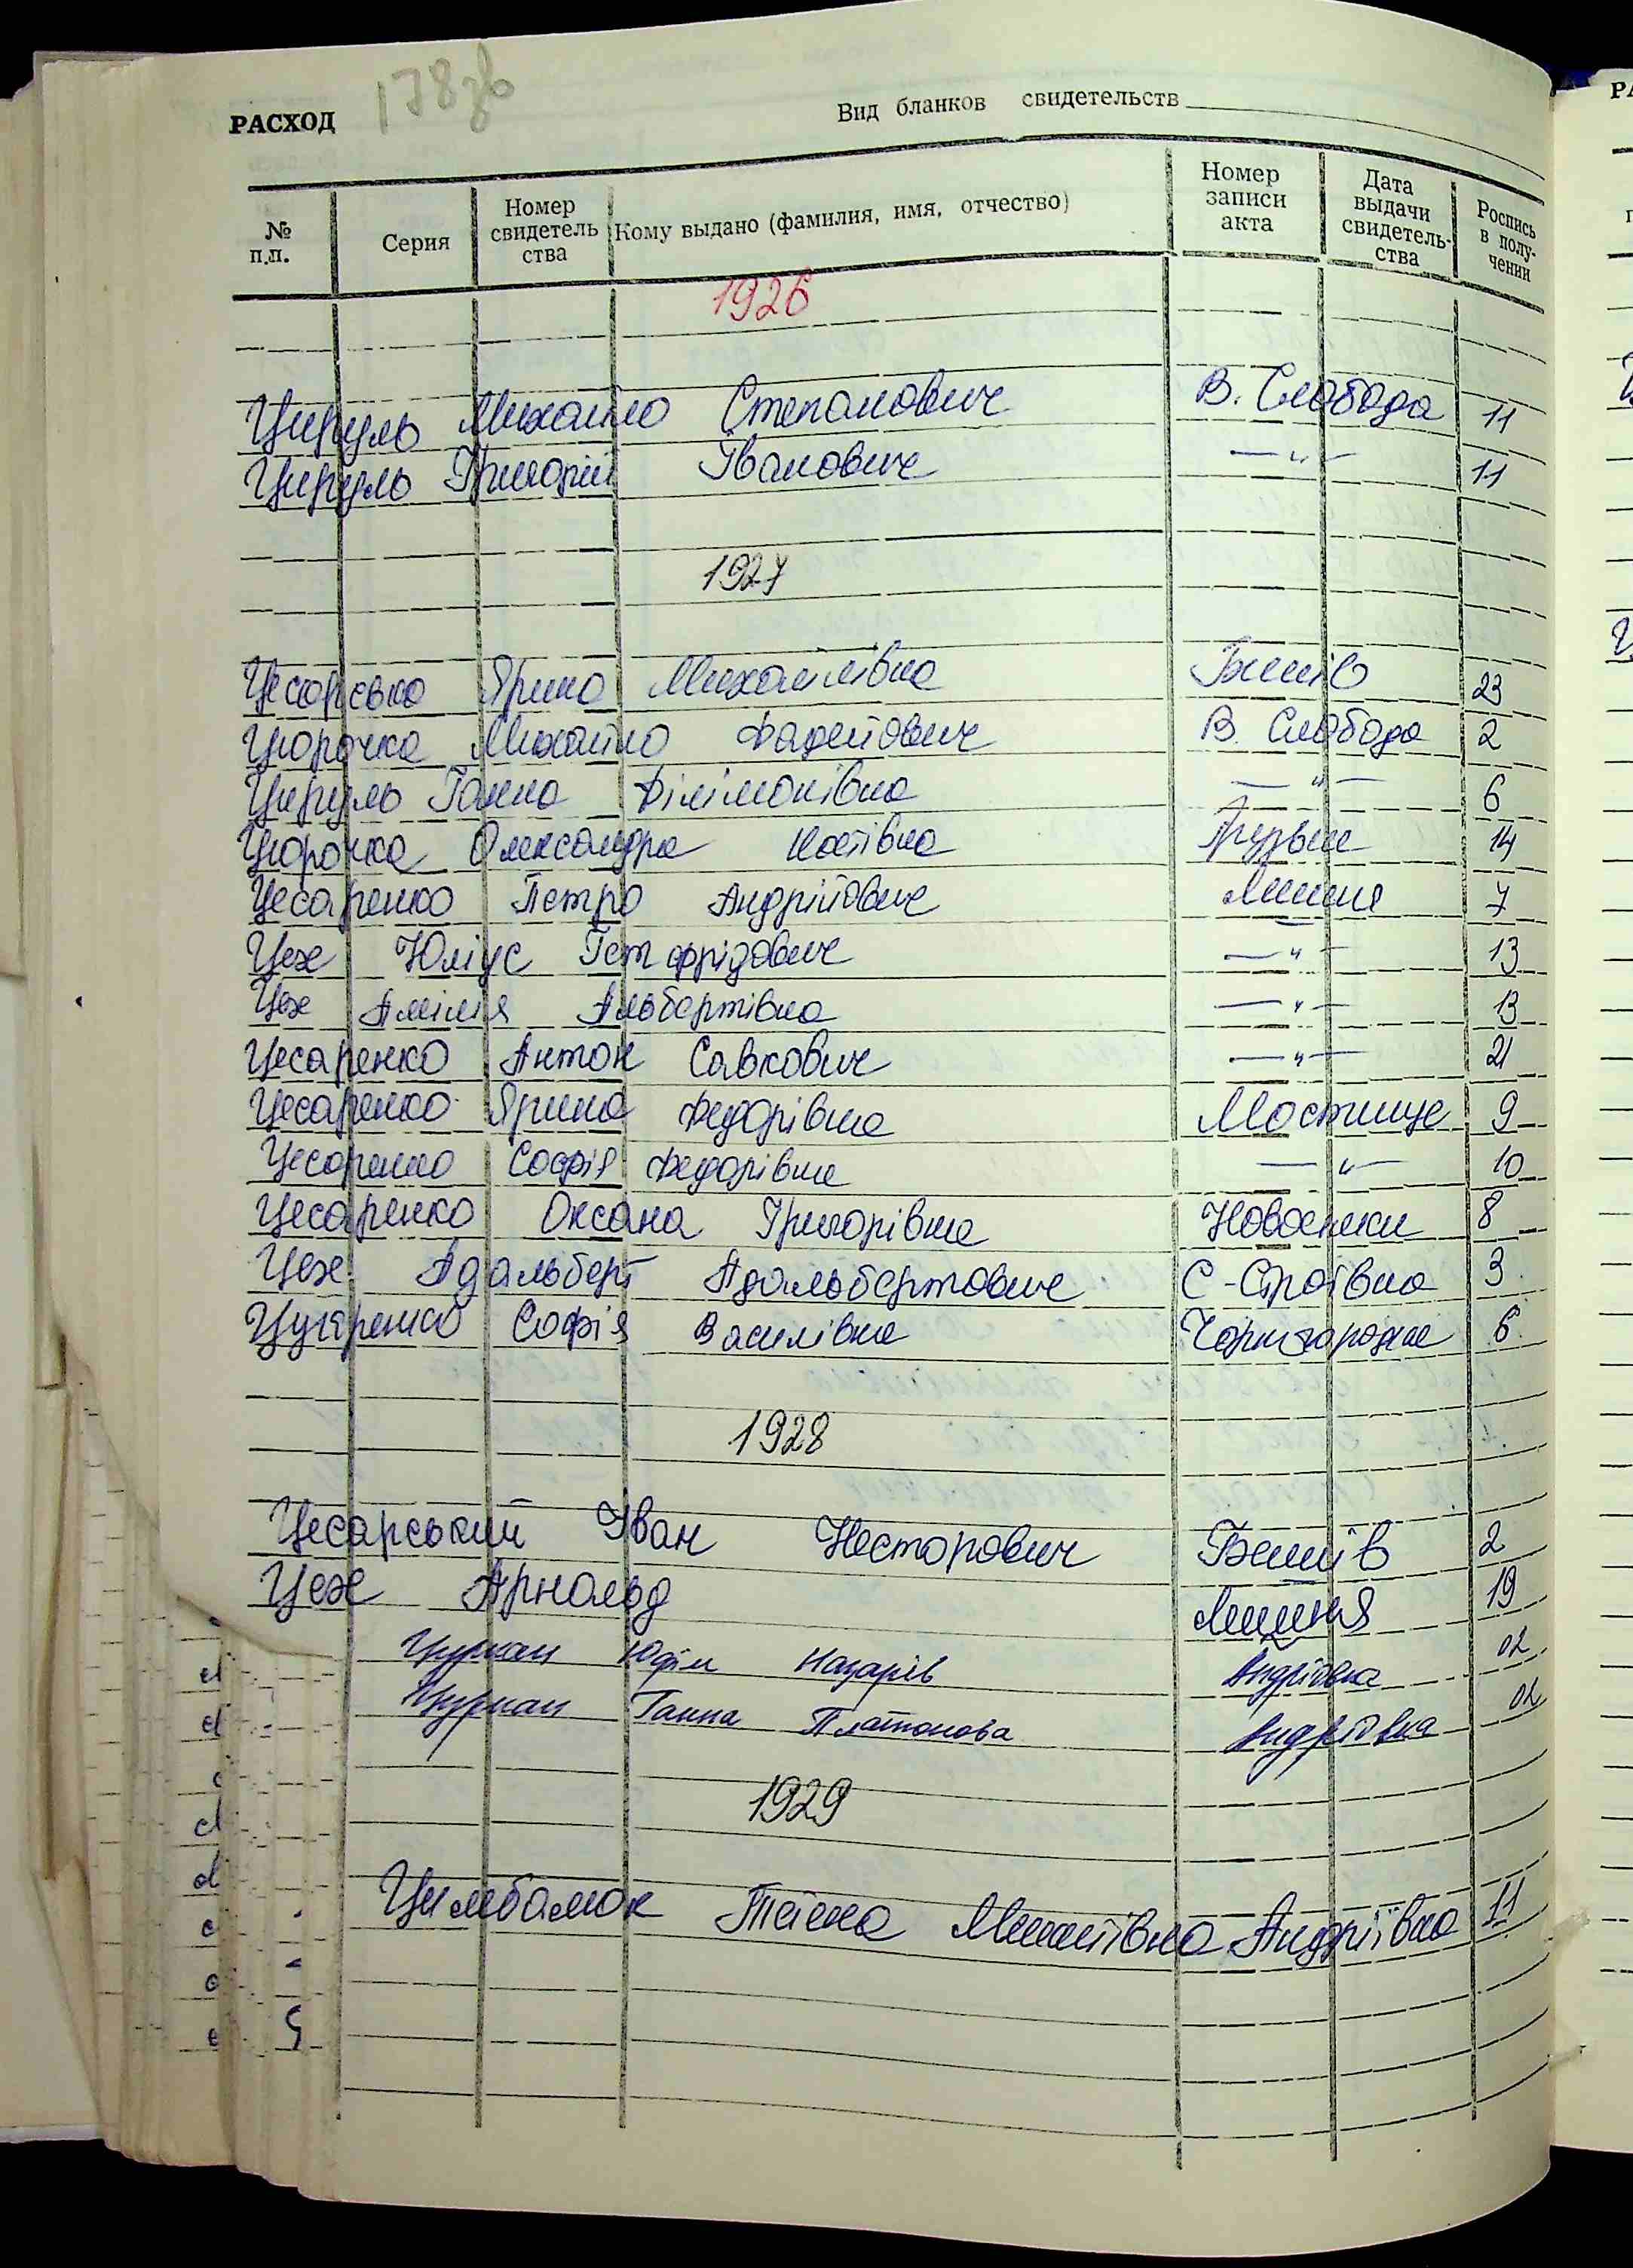 178зв
РАСХОД
Вид бланков свидетельств
№ п.п.
Серия
Номер свидетель ства
Кому выдано (фамилия, имя, отчество)
Номер записи акта
Дата выдачи свидетель- ства
Роспись в полу- чении
1926
Цируль Михайло Степанович В. Слобода 11
Цируль Григорій Іванович —"— 11
1927
Ярина Михайлівна 23
Цюрочка Михайло Фадейович В. Слобода 2
Цируль Ганна Філімонівна —"— 6
Цюрочка Олександра Грузьке 14
Цесаренко Петро Андрійович Лишня 7
Цех Юліус Готфрідович —"— 13
Цех Амілія Альбертівна —"— 13
Цесаренко Антон Савкович —"— 21
Цесаренко Ярина Федорівна Мостище 9
Цесаренко Софія Федорівна —"— 10
Цесаренко Оксана Григорівна Новосілки 8
Цех Адальберт Адальбертович С-Строївка 3
Софія Василівна 6
1928
Цесарський Іван Несторович 2
Цех Арнольд Лишня 19
Цуркан Юфім Назарів Андріївка 02
Цуркан Ганна Платонова Андріївка 02
1929
Цимбалюк Андріївка 11